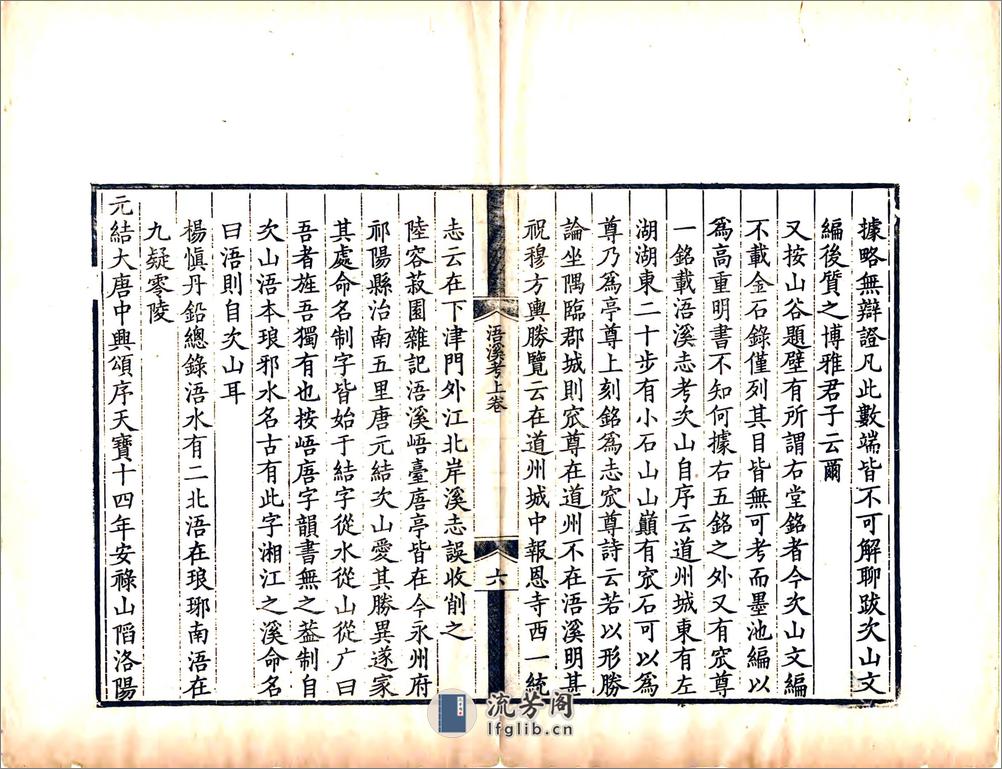 據略無辯證凡此數端皆不可解聊跋次山文
編後質之博雅君子云爾
又按山谷題壁有所謂右堂銘者今次山文編
不載金石錄僅列其目皆無可考而墨池編以
爲高重明書不知何據右五銘之外又有窊尊
一銘載浯溪志考次山自序云道州城東有左
湖湖東二十步有小石山山巔有窊石可以爲
尊乃爲亭尊上刻銘爲志窊尊詩云若以形勝
論坐隅臨郡城則窊尊在道州不在浯溪明甚
祝穆方輿勝覽云在道州城中報恩寺西一統
浯溪考上卷
六
志云在下津門外江北岸溪志誤收削之
陸容菽園雜記浯溪峿臺㾿亭皆在今永州府
祁陽縣治南五里唐元結次山愛其勝異遂家
其處命名制字皆始于結字從水從山從广曰
吾者旌吾獨有也按峿㾿字韻書無之葢制自
次山浯本琅邪水名古有此字湘江之溪命名
曰浯則自次山耳
楊愼丹鉛總錄浯水有二北浯在琅琊南浯在
九疑零陵
元結大唐中興頌序天寶十四年安祿山陷洛陽
流芳阁
lfglib.cn